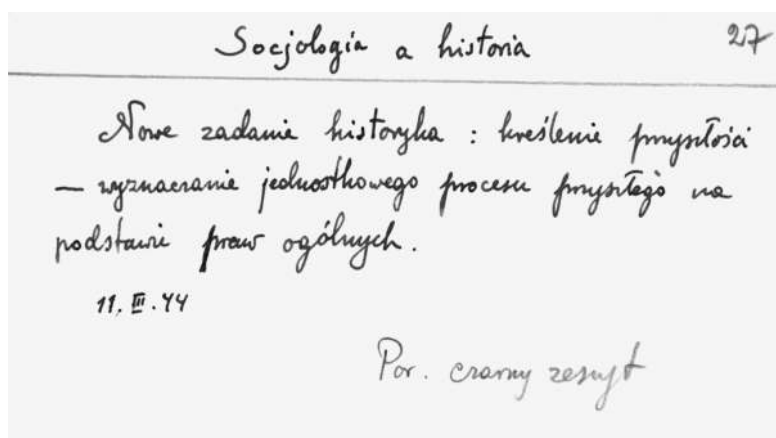 Socjologia a historia 27
Nowe zadanie historyka : kreślenie przyszłości
— wyznaczanie jednostkowego procesu przyszłego na
podstawie praw ogólnych.
11. III. 44
Por. czarny zeszyt